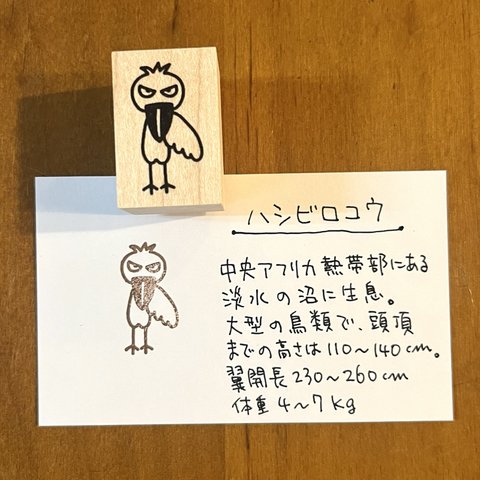 ハシビロコウ
中央アフリカ熱帯部にある
淡水の沼に生息。
大型の鳥類で、頭頂
までの高さは110〜140cm。
翼開長230〜260cm
体重4〜7kg